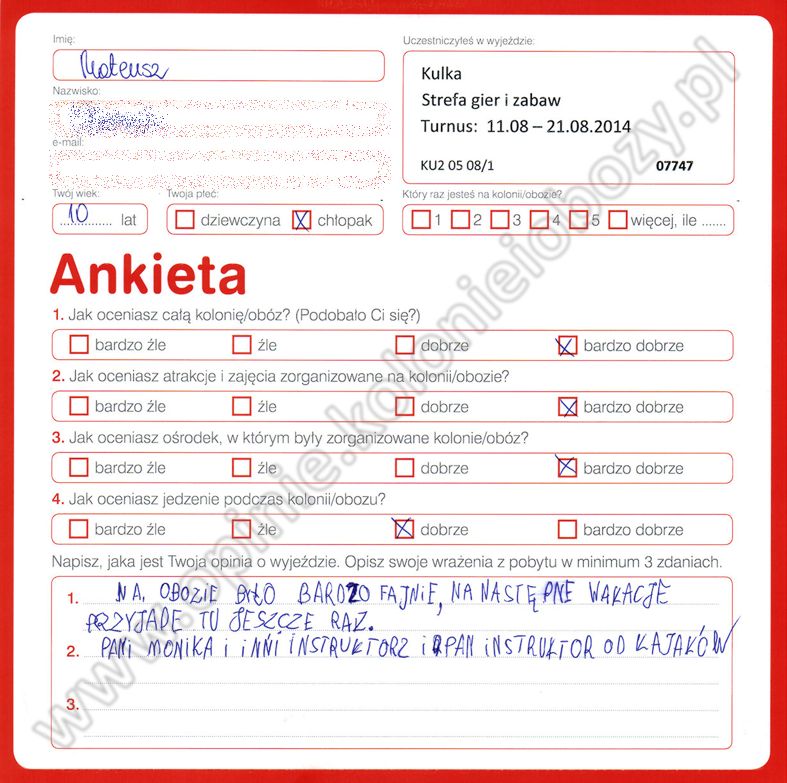 Imię:
Mateusz
Nazwisko:
e-mail:
Twój wiek:
10 lat
Twoja płeć:
dziewczyna chłopak
Uczestniczyłeś w wyjeździe:
Kulka
Strefa gier i zabaw
Turnus: 11.08 – 21.08.2014
KU2 05 08/1 07747
Który raz jesteś na kolonii/obozie?
1 2 3 4 5 więcej, ile .......
Ankieta
1. Jak oceniasz całą kolonię/obóz? (Podobało Ci się?)
bardzo źle źle dobrze bardzo dobrze
2. Jak oceniasz atrakcje i zajęcia zorganizowane na kolonii/obozie?
bardzo źle źle dobrze bardzo dobrze
3. Jak oceniasz ośrodek, w którym były zorganizowane kolonie/obóz?
bardzo źle źle dobrze bardzo dobrze
4. Jak oceniasz jedzenie podczas kolonii/obozu?
bardzo źle źle dobrze bardzo dobrze
Napisz, jaka jest Twoja opinia o wyjeździe. Opisz swoje wrażenia z pobytu w minimum 3 zdaniach.
1. NA OBOZIE BYŁO BARDZO FAJNIE, NA NASTĘPNE WAKACJE
PRZYJADE TU JESZCZE RAZ.
2. PANI MONIKA i iNNi iNSTRUKTORZ i PAN iNSTRUKTOR OD KAJAKÓW
3.
www.opinie.kolonieiobozy.pl